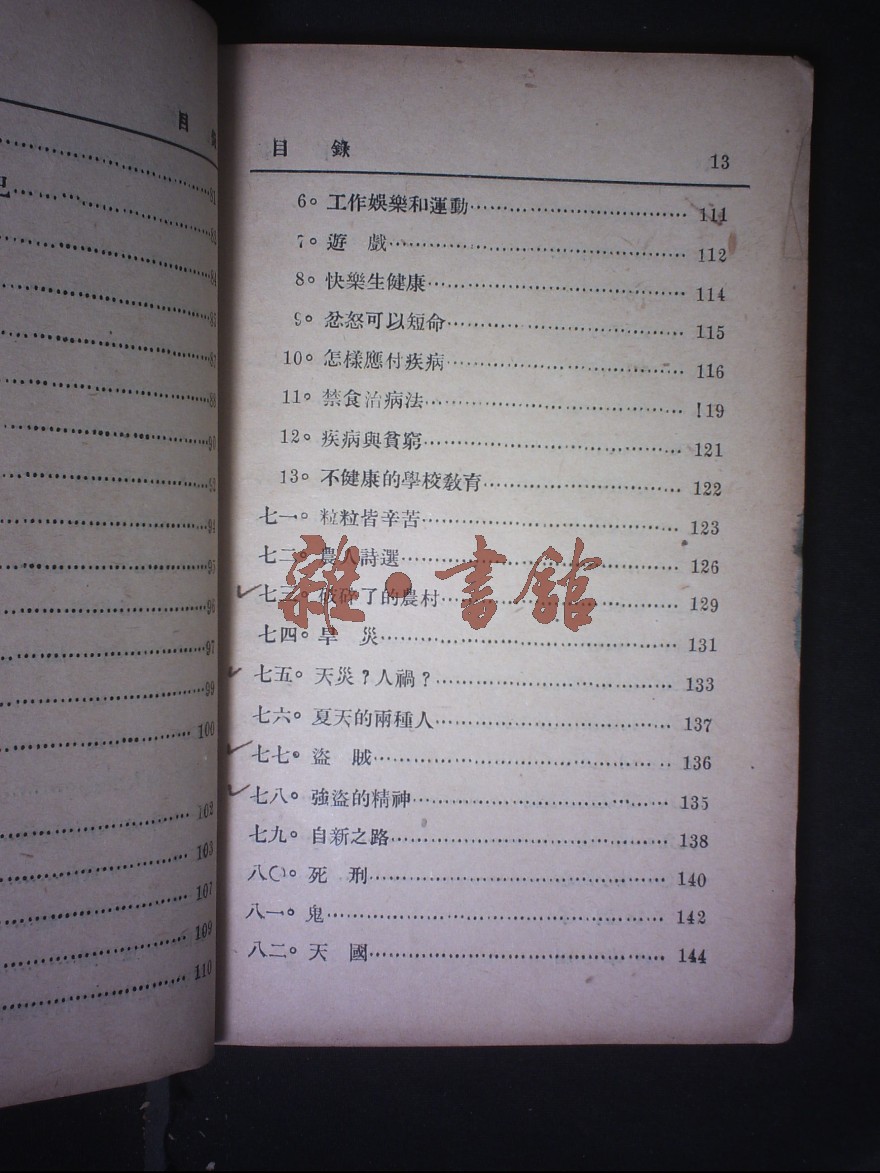 目錄
81
83
84
85
87
88
90
92
94
95
96
97
99
100
102
103
107
109
110
目錄 13
6。工作娛樂和運動 111
7。遊戲 112
8。快樂生健康 114
9。忿怒可以短命 115
10。怎樣應付疾病 116
11。禁食治病法 !19
12。疾病與貧窮 121
13。不健康的學校教育 122
七一。粒粒皆辛苦 123
七二。農人詩選 126
七三。破碎了的農村 129
七四。旱災 131
七五。天災？人禍？ 133
七六。夏天的兩種人 137
七七。盜賊 136
七八。強盜的精神 135
七九。自新之路 138
八〇。死刑 140
八一。鬼 142
八二。天國 144
雜·書館